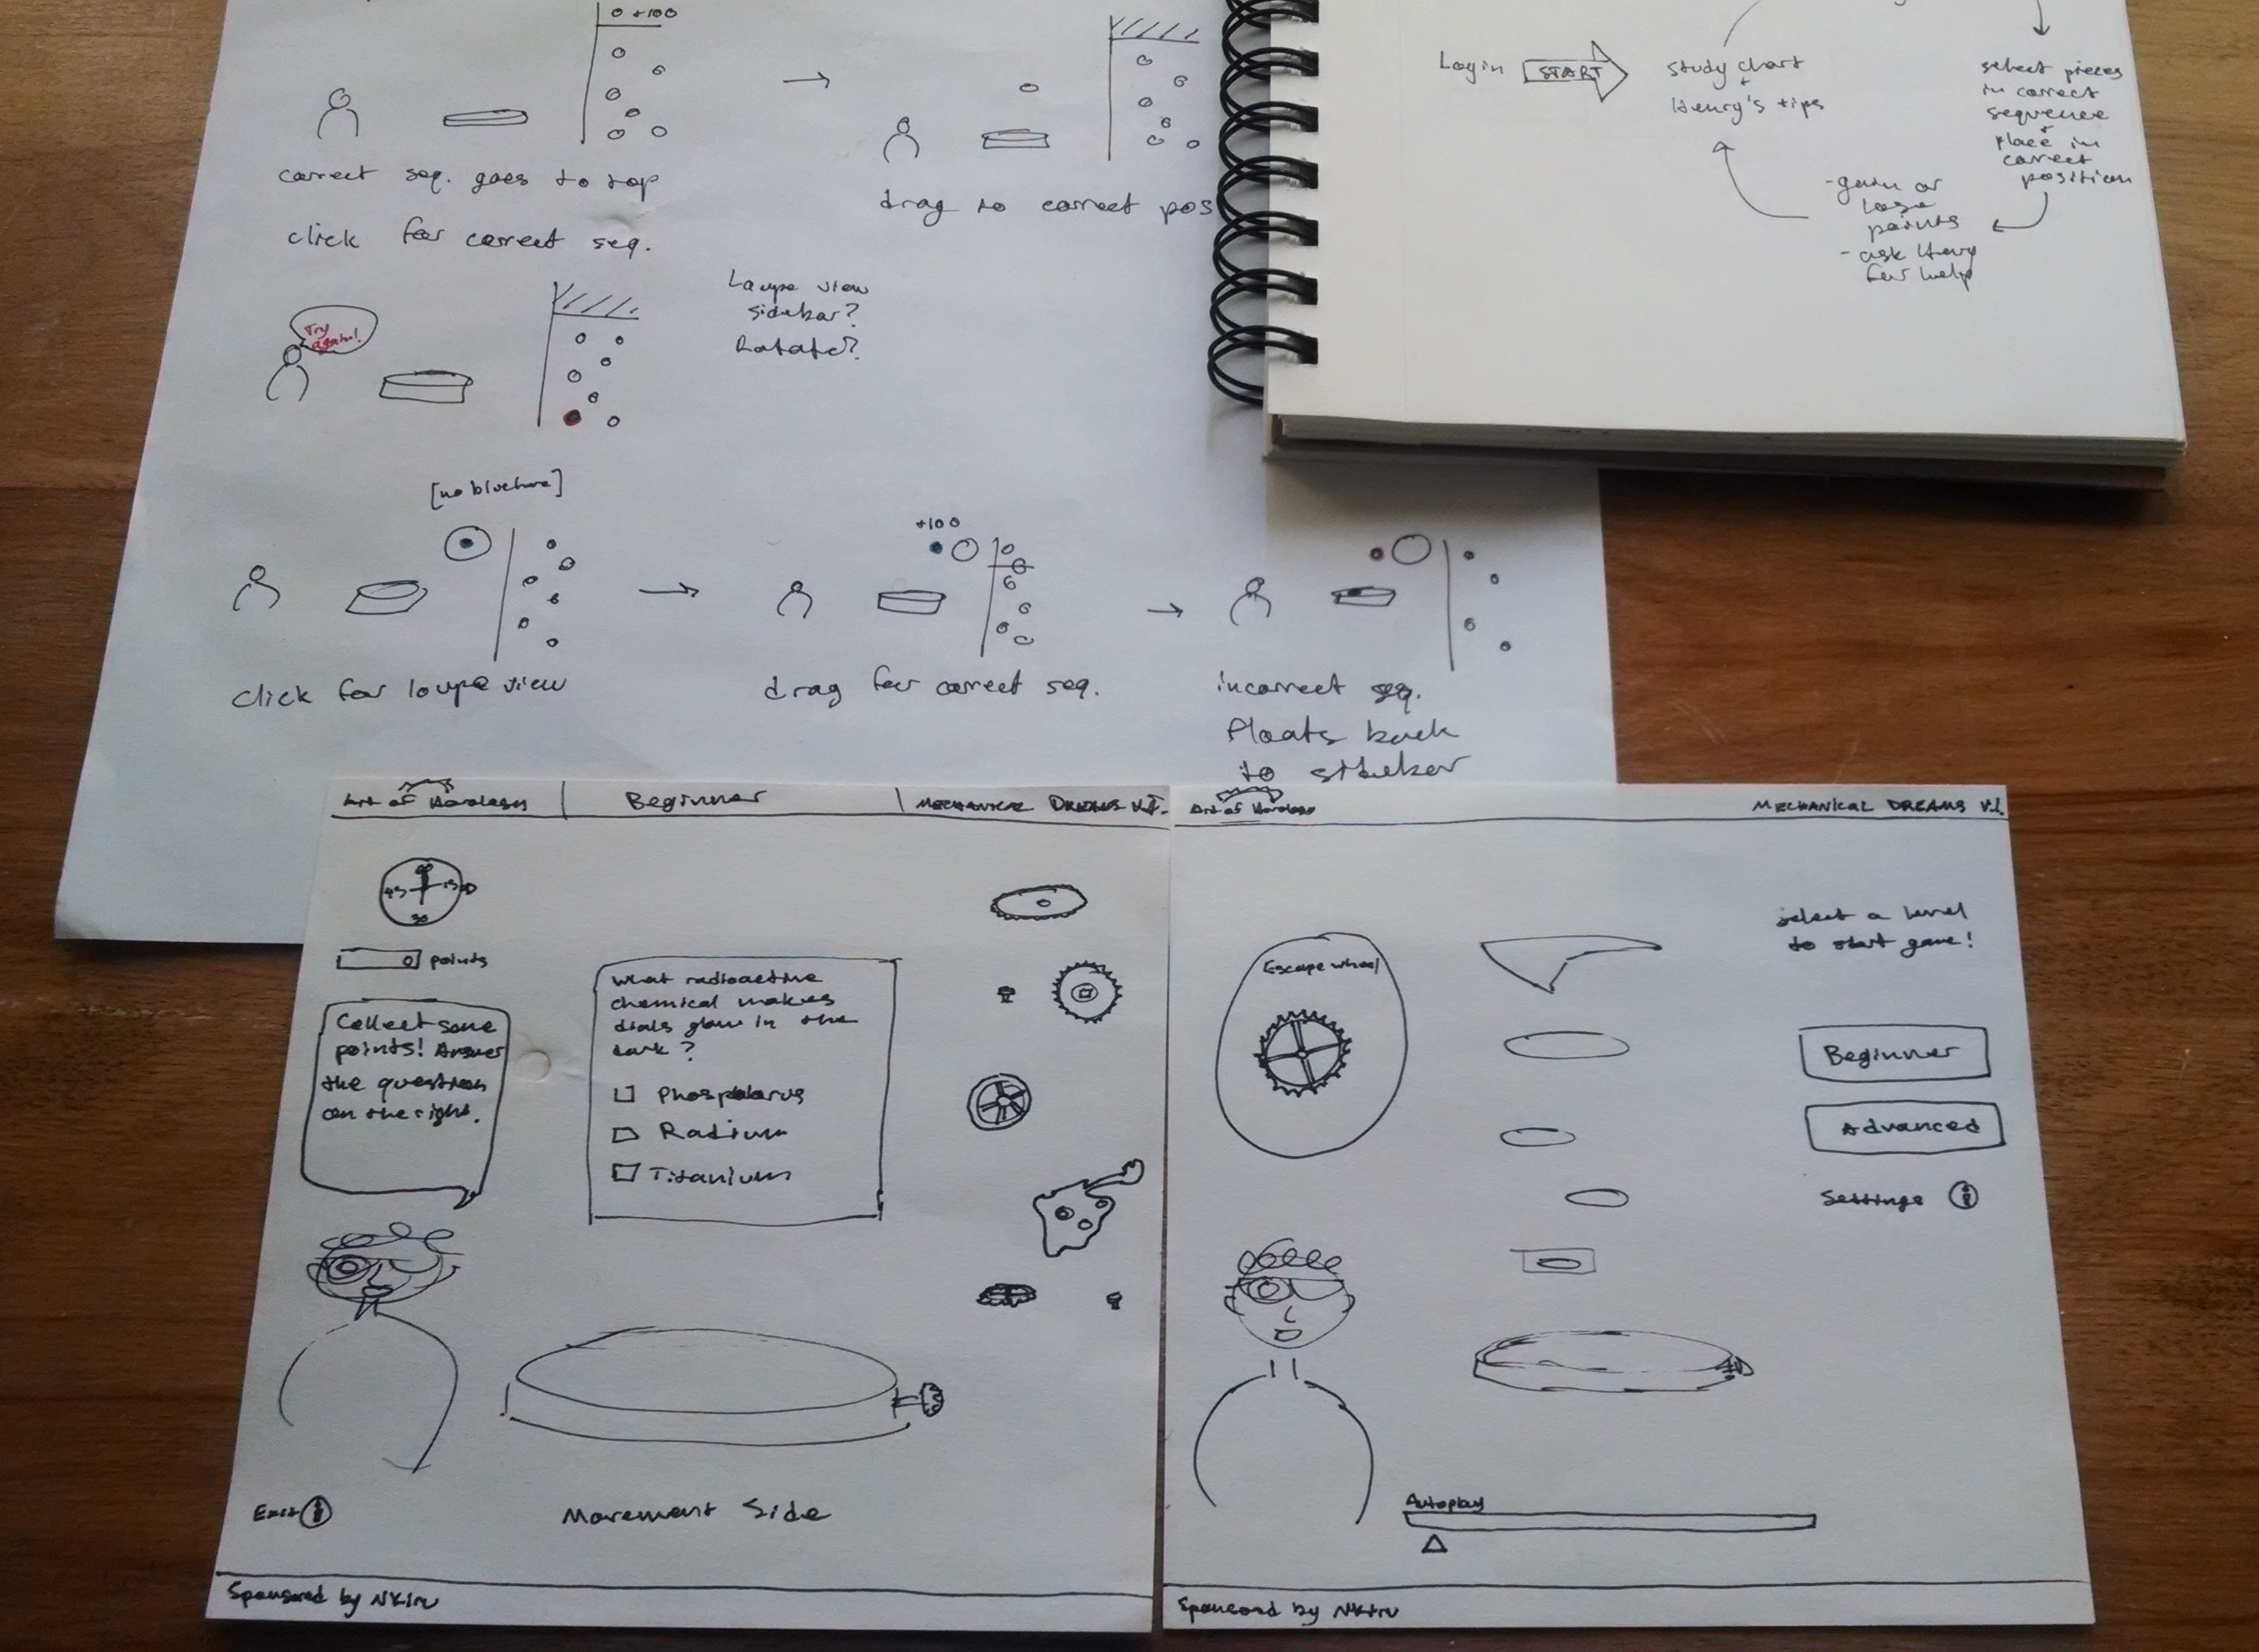 0 +100
correct seq. goes to top
click for correct seq.
drag to correct pos
Try
again!
Loupe view
sidebar?
Rotate?
click for loupe view
+100
drag for correct seq.
incorrect seq.
floats back
to
Login
START
study chart
+
Henry's tips
select pieces
in correct
sequence
+
place in
correct
position
- gain or
lose
points
- ask Henry
for help
Art of Horology
Beginner
MECHANICAL DREAMS V.I.
60
45
15
30
0 points
Collect some
points! Answer
the question
on the right.
What radioactive
chemical makes
dials glow in the
dark?
Phosphorus
Radium
Titanium
Exit
Movement Side
Sponsored by NKiru
Art of Horology
MECHANICAL DREAMS V.I.
select a level
to start game!
Escape wheel
Beginner
Advanced
Settings
Autoplay
Sponsored by NKiru